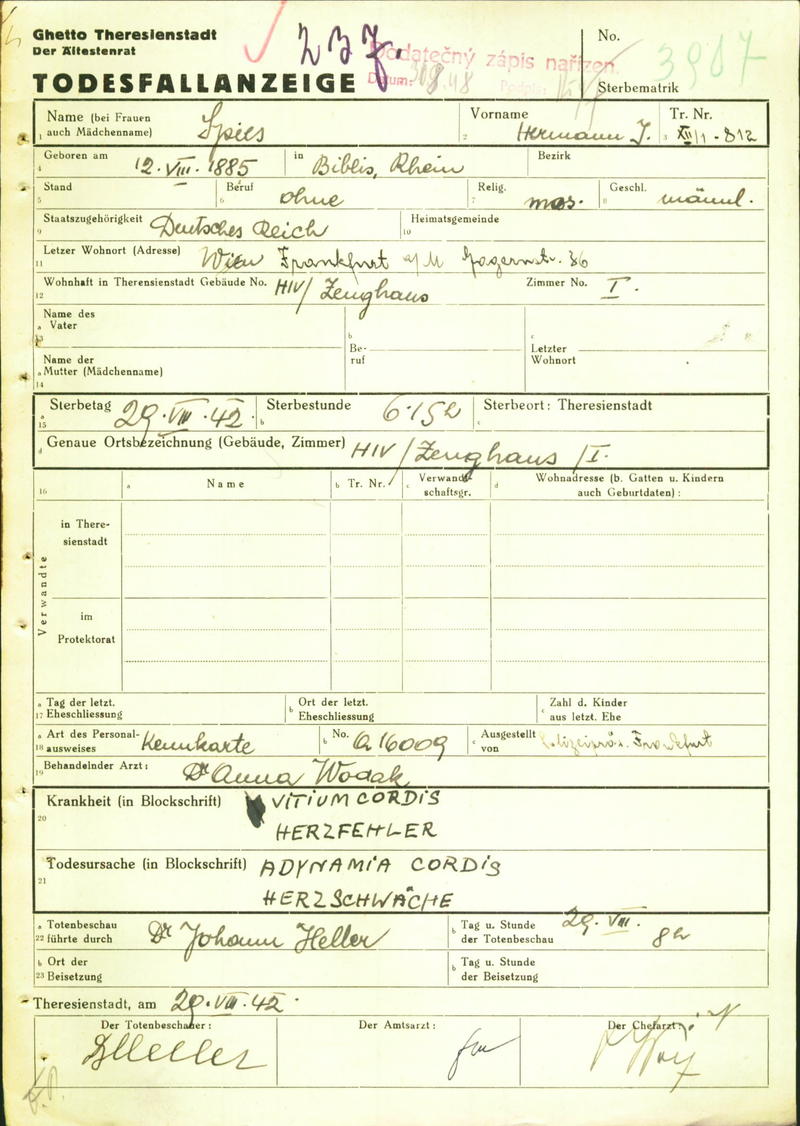 Ghetto Theresienstadt
Der Ältestenrat
TODESFALLANZEIGE
237.
Dodatečný zápis nařízen.
Datum: 48 Podpis:
No.
3907
Sterbematrik
Name (bei Frauen
1 auch Mädchenname) Spies
Vorname
2 Hermann J.
Tr. Nr.
3 XII/1 - 812
Geboren am
4 12. VIII. 1885 in Biblis, Rhein Bezirk
Stand
5 —
Beruf
6 ohne
Relig.
7 mos.
Geschl.
8 männl.
Staatszugehörigkeit
9 Deutsches Reich
Heimatsgemeinde
10
Letzer Wohnort (Adresse)
11 Wien Frankfurt a/M 36
Wohnhaft in Theresienstadt Gebäude No.
12 HIV/Zeughaus Zimmer No. I.
Name des
a Vater
13
b
Be-
ruf
c
Letzter
Wohnort
Name der
a Mutter (Mädchenname)
14
a Sterbetag
15 29. VIII. 42
b Sterbestunde 6·15h
c Sterbeort: Theresienstadt
d Genaue Ortsbezeichnung (Gebäude, Zimmer) HIV/Zeughaus /I.
16 a Name b Tr. Nr. c Verwandt-
schaftsgr. d Wohnadresse (b. Gatten u. Kindern
auch Geburtdaten):
Verwandte
in There-
sienstadt
im
Protektorat
a Tag der letzt.
17 Eheschliessung
b Ort der letzt.
Eheschliessung
c Zahl d. Kinder
aus letzt. Ehe
a Art des Personal-
18 ausweises Kennkarte
b No. A 16009
c Ausgestellt
von Frankfurt
Behandelnder Arzt:
19 Dr Anna Wodak
Krankheit (in Blockschrift) VITIUM CORDIS
20
HERZFEHLER
Todesursache (in Blockschrift) ADYNAMIA CORDIS
21
HERZSCHWÄCHE
a Totenbeschau
22 führte durch Dr Johann Heller
b Tag u. Stunde
der Totenbeschau 29. VIII. 8h
b Ort der
23 Beisetzung
b Tag u. Stunde
der Beisetzung
Theresienstadt, am 29. VIII. 42.
Der Totenbeschauer:
Heller
Der Amtsarzt:
Der Chefarzt: